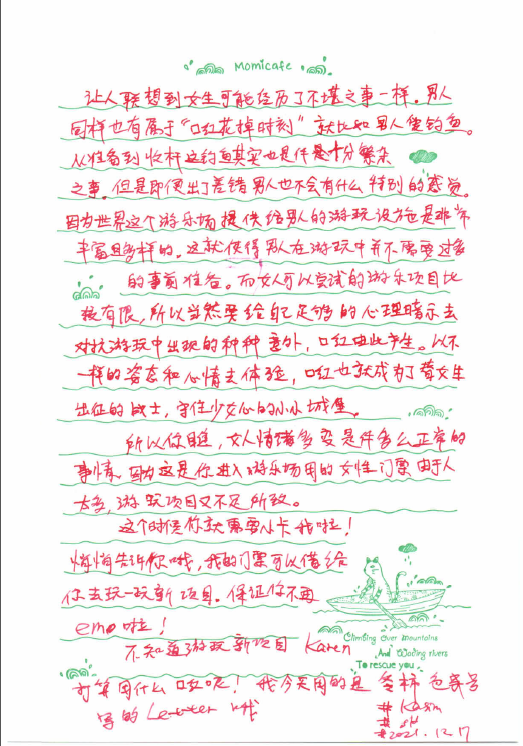 Momicafe
让人联想到女生可能经历了不堪之事一样。男人
同样也有属于“口红花掉时刻”就比如男人坐钓鱼。
从准备到收杆这钓鱼其实也是件是十分繁杂
之事。但是即便出了差错男人也不会有什么特别的感觉。
因为世界这个游乐场提供给男人的游玩设施是非常
丰富且多样的。这就使得男人在游玩中并不需要过多
的事前准备。而女人可以尝试的游乐项目比
较有限,所以当然要给自己足够的心理暗示去
对抗游玩中出现的种种意外,口红由此产生。以不
一样的姿态和心情去体验,口红也就成为了替女生
出征的战士,守住少女心的小小城堡。
所以你瞧,女人情绪多变是件多么正常的
事情。因为这是你进入游乐场用的女性门票由于人
太多,游玩项目又不足所致。
这个时候你就需要小卡我啦!
悄悄告诉你哦,我的门票可以借给
你去玩一玩新项目。保证你不再
emo啦!
不知道游玩新项目 Karen
Climbing Over mountains
And Wading rivers
To rescue you
打算用什么口红呢!我今天用的是 色号
写的Letter 哦
# Karim
#
#2021.12.17